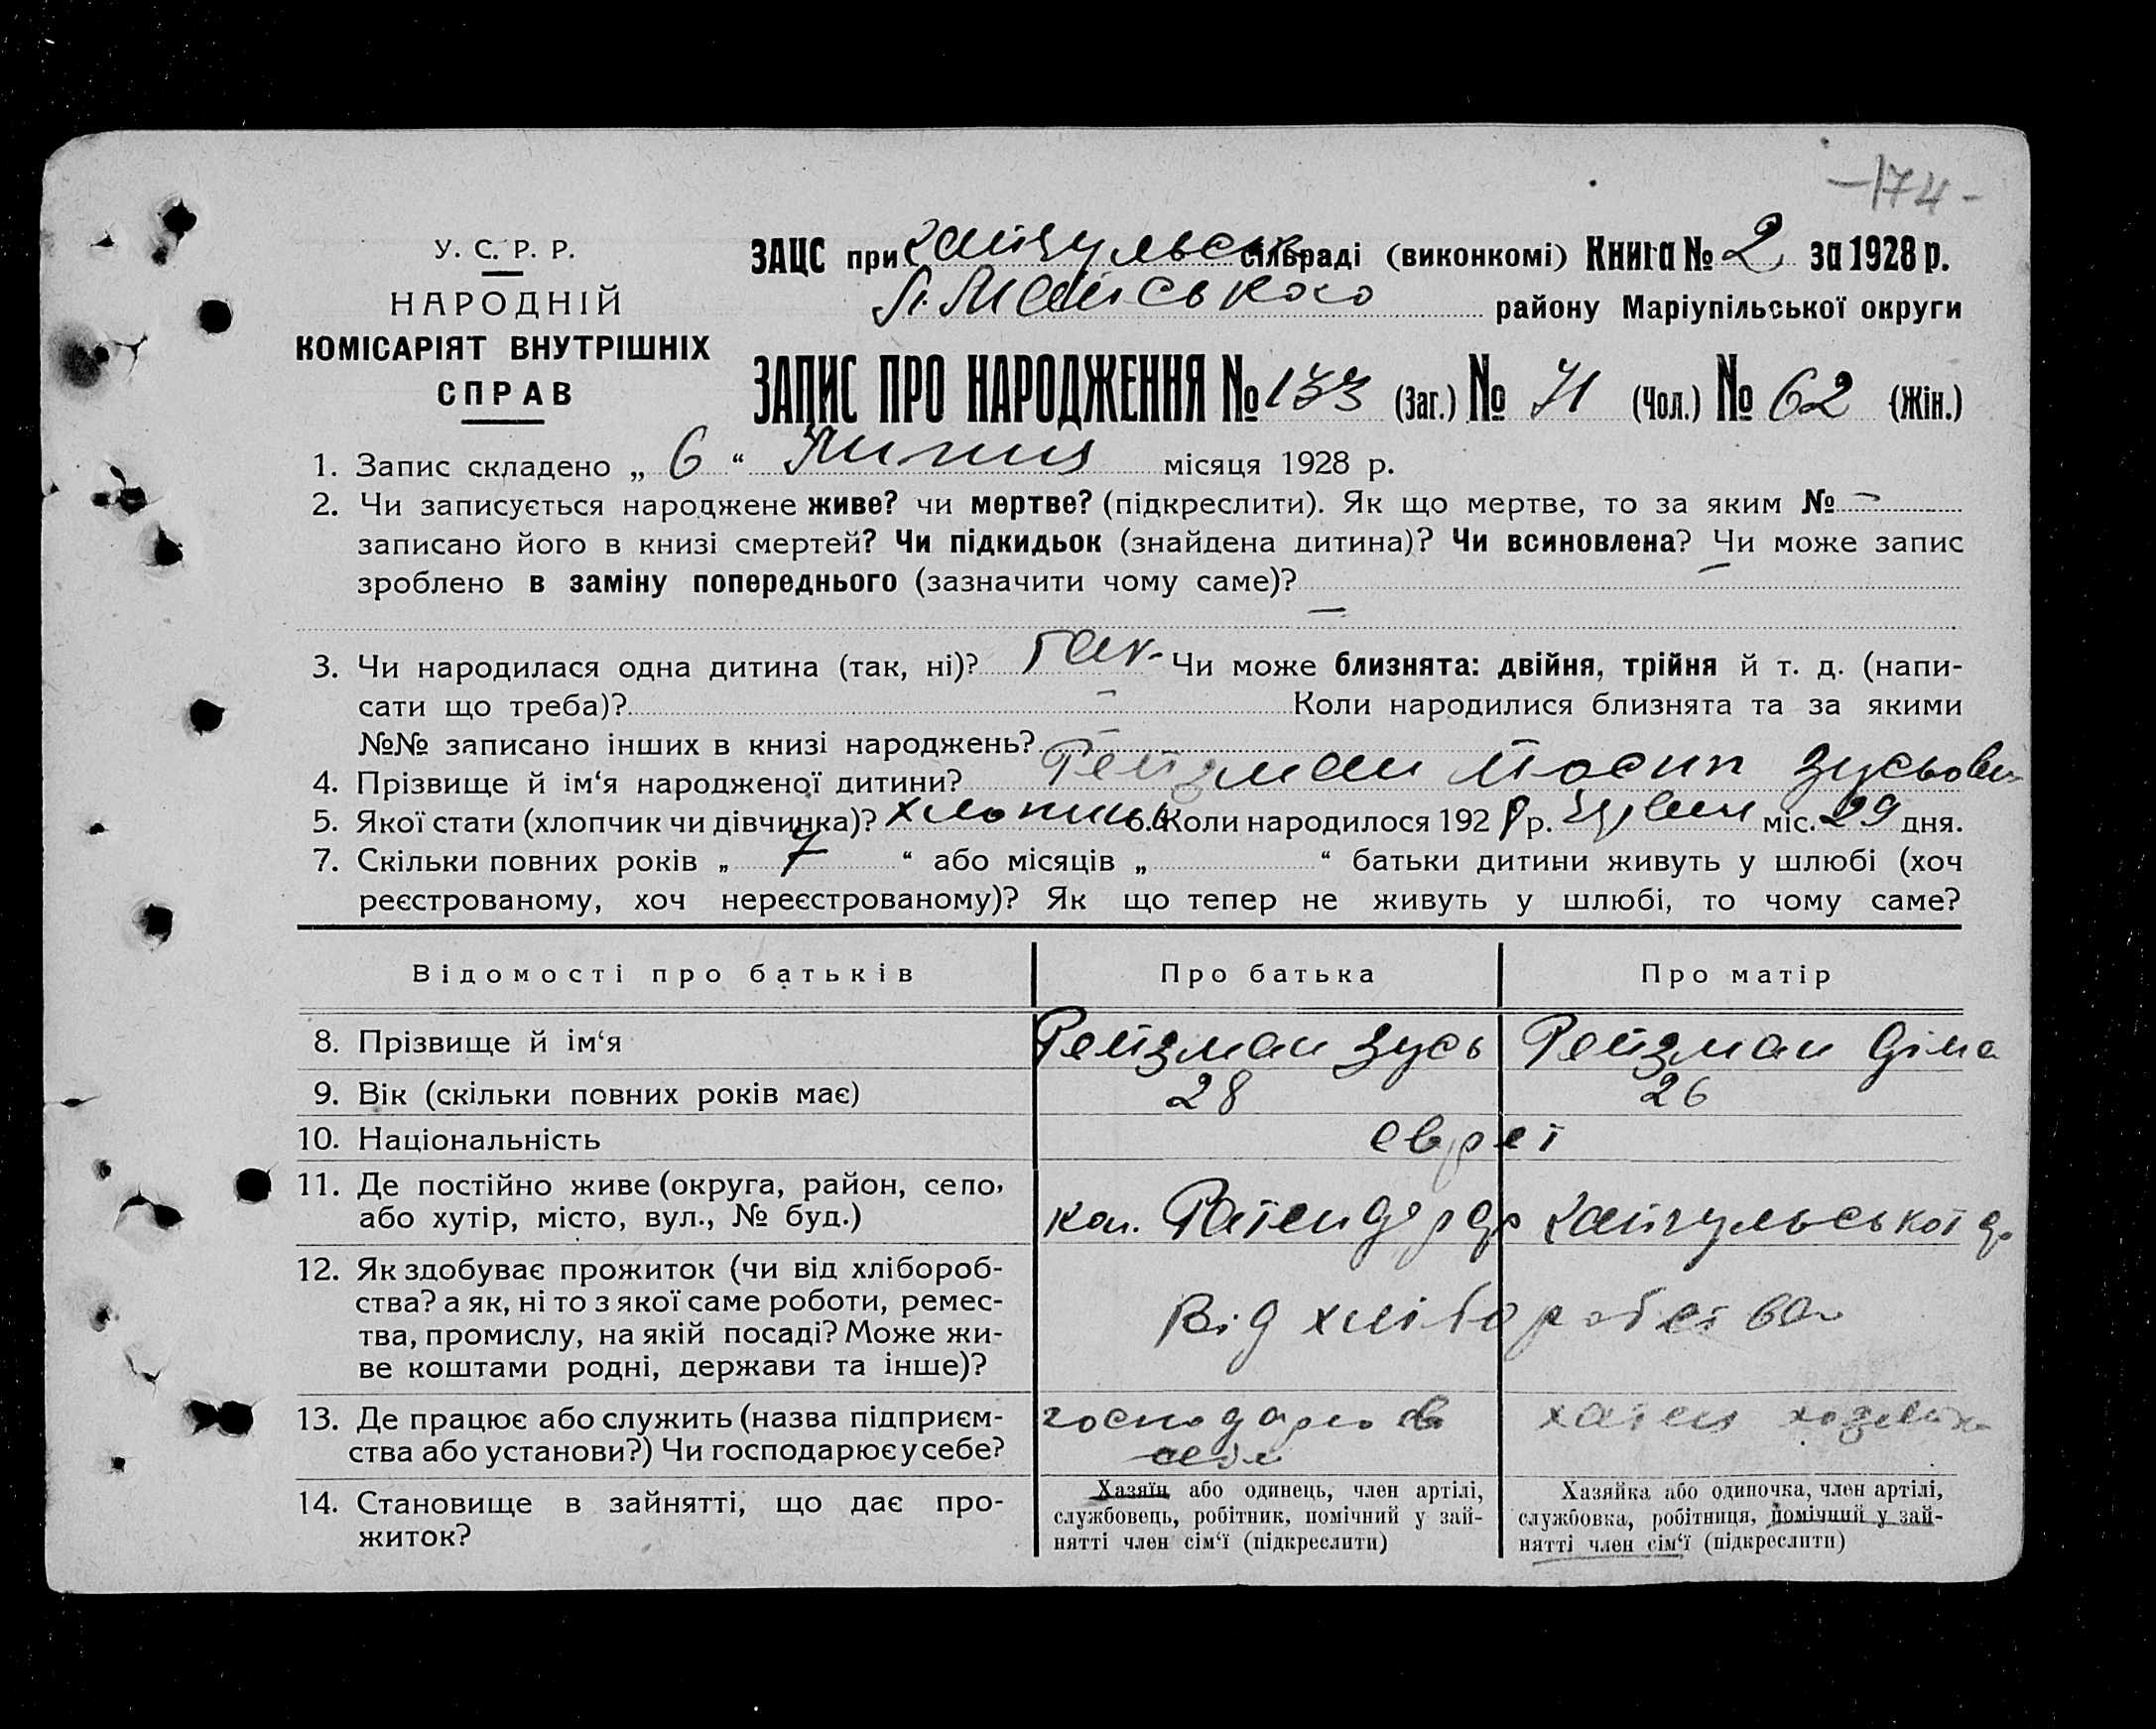 -174-
У. С. Р. Р.
НАРОДНІЙ
КОМІСАРІЯТ ВНУТРІШНІХ
СПРАВ
ЗАЦС при сільраді (виконкомі) Книга № 2 за 1928 р.
району Маріупільської округи
ЗАПИС ПРО НАРОДЖЕННЯ № 133 (Заг.) № 71 (Чол.) № 62 (Жін.)
1. Запис складено „ 6 “ Липня місяця 1928 р.
2. Чи записується народжене живе? чи мертве? (підкреслити). Як що мертве, то за яким № —
записано його в книзі смертей? Чи підкидьок (знайдена дитина)? Чи всиновлена? Чи може запис
зроблено в заміну попереднього (зазначити чому саме)? —
3. Чи народилася одна дитина (так, ні)? так Чи може близнята: двійня, трійня й т. д. (напи-
сати що треба)? — Коли народилися близнята та за якими
№№ записано інших в книзі народжень? —
4. Прізвище й ім‘я народженої дитини? Рейзман Йосип Зусьович
5. Якої стати (хлопчик чи дівчинка)? хлопчик 6. Коли народилося 1928 р. Червня міс. 29 дня.
7. Скільки повних років „ 7 “ або місяців „ “ батьки дитини живуть у шлюбі (хоч
реєстрованому, хоч нереєстрованому)? Як що тепер не живуть у шлюбі, то чому саме?
Відомості про батьків Про батька Про матір
8. Прізвище й ім‘я Рейзман Зусь Рейзман Діна
9. Вік (скільки повних років має) 28 26
10. Національність евреї
11. Де постійно живе (округа, район, село,
або хутір, місто, вул., № буд.) кол. Ратендорф
12. Як здобуває прожиток (чи від хлібороб-
ства? а як, ні то з якої саме роботи, ремес-
тва, промислу, на якій посаді? Може жи-
ве коштами родні, держави та інше)? Від хліборобства
13. Де працює або служить (назва підприєм-
ства або установи?) Чи господарює у себе?
14. Становище в зайнятті, що дає про-
житок?
Хазяїн або одинець, член артілі,
службовець, робітник, помічний у зай-
нятті член сім‘ї (підкреслити)
Хазяйка або одиночка, член артілі,
службовка, робітниця, помічний у зай-
нятті член сім‘ї (підкреслити)